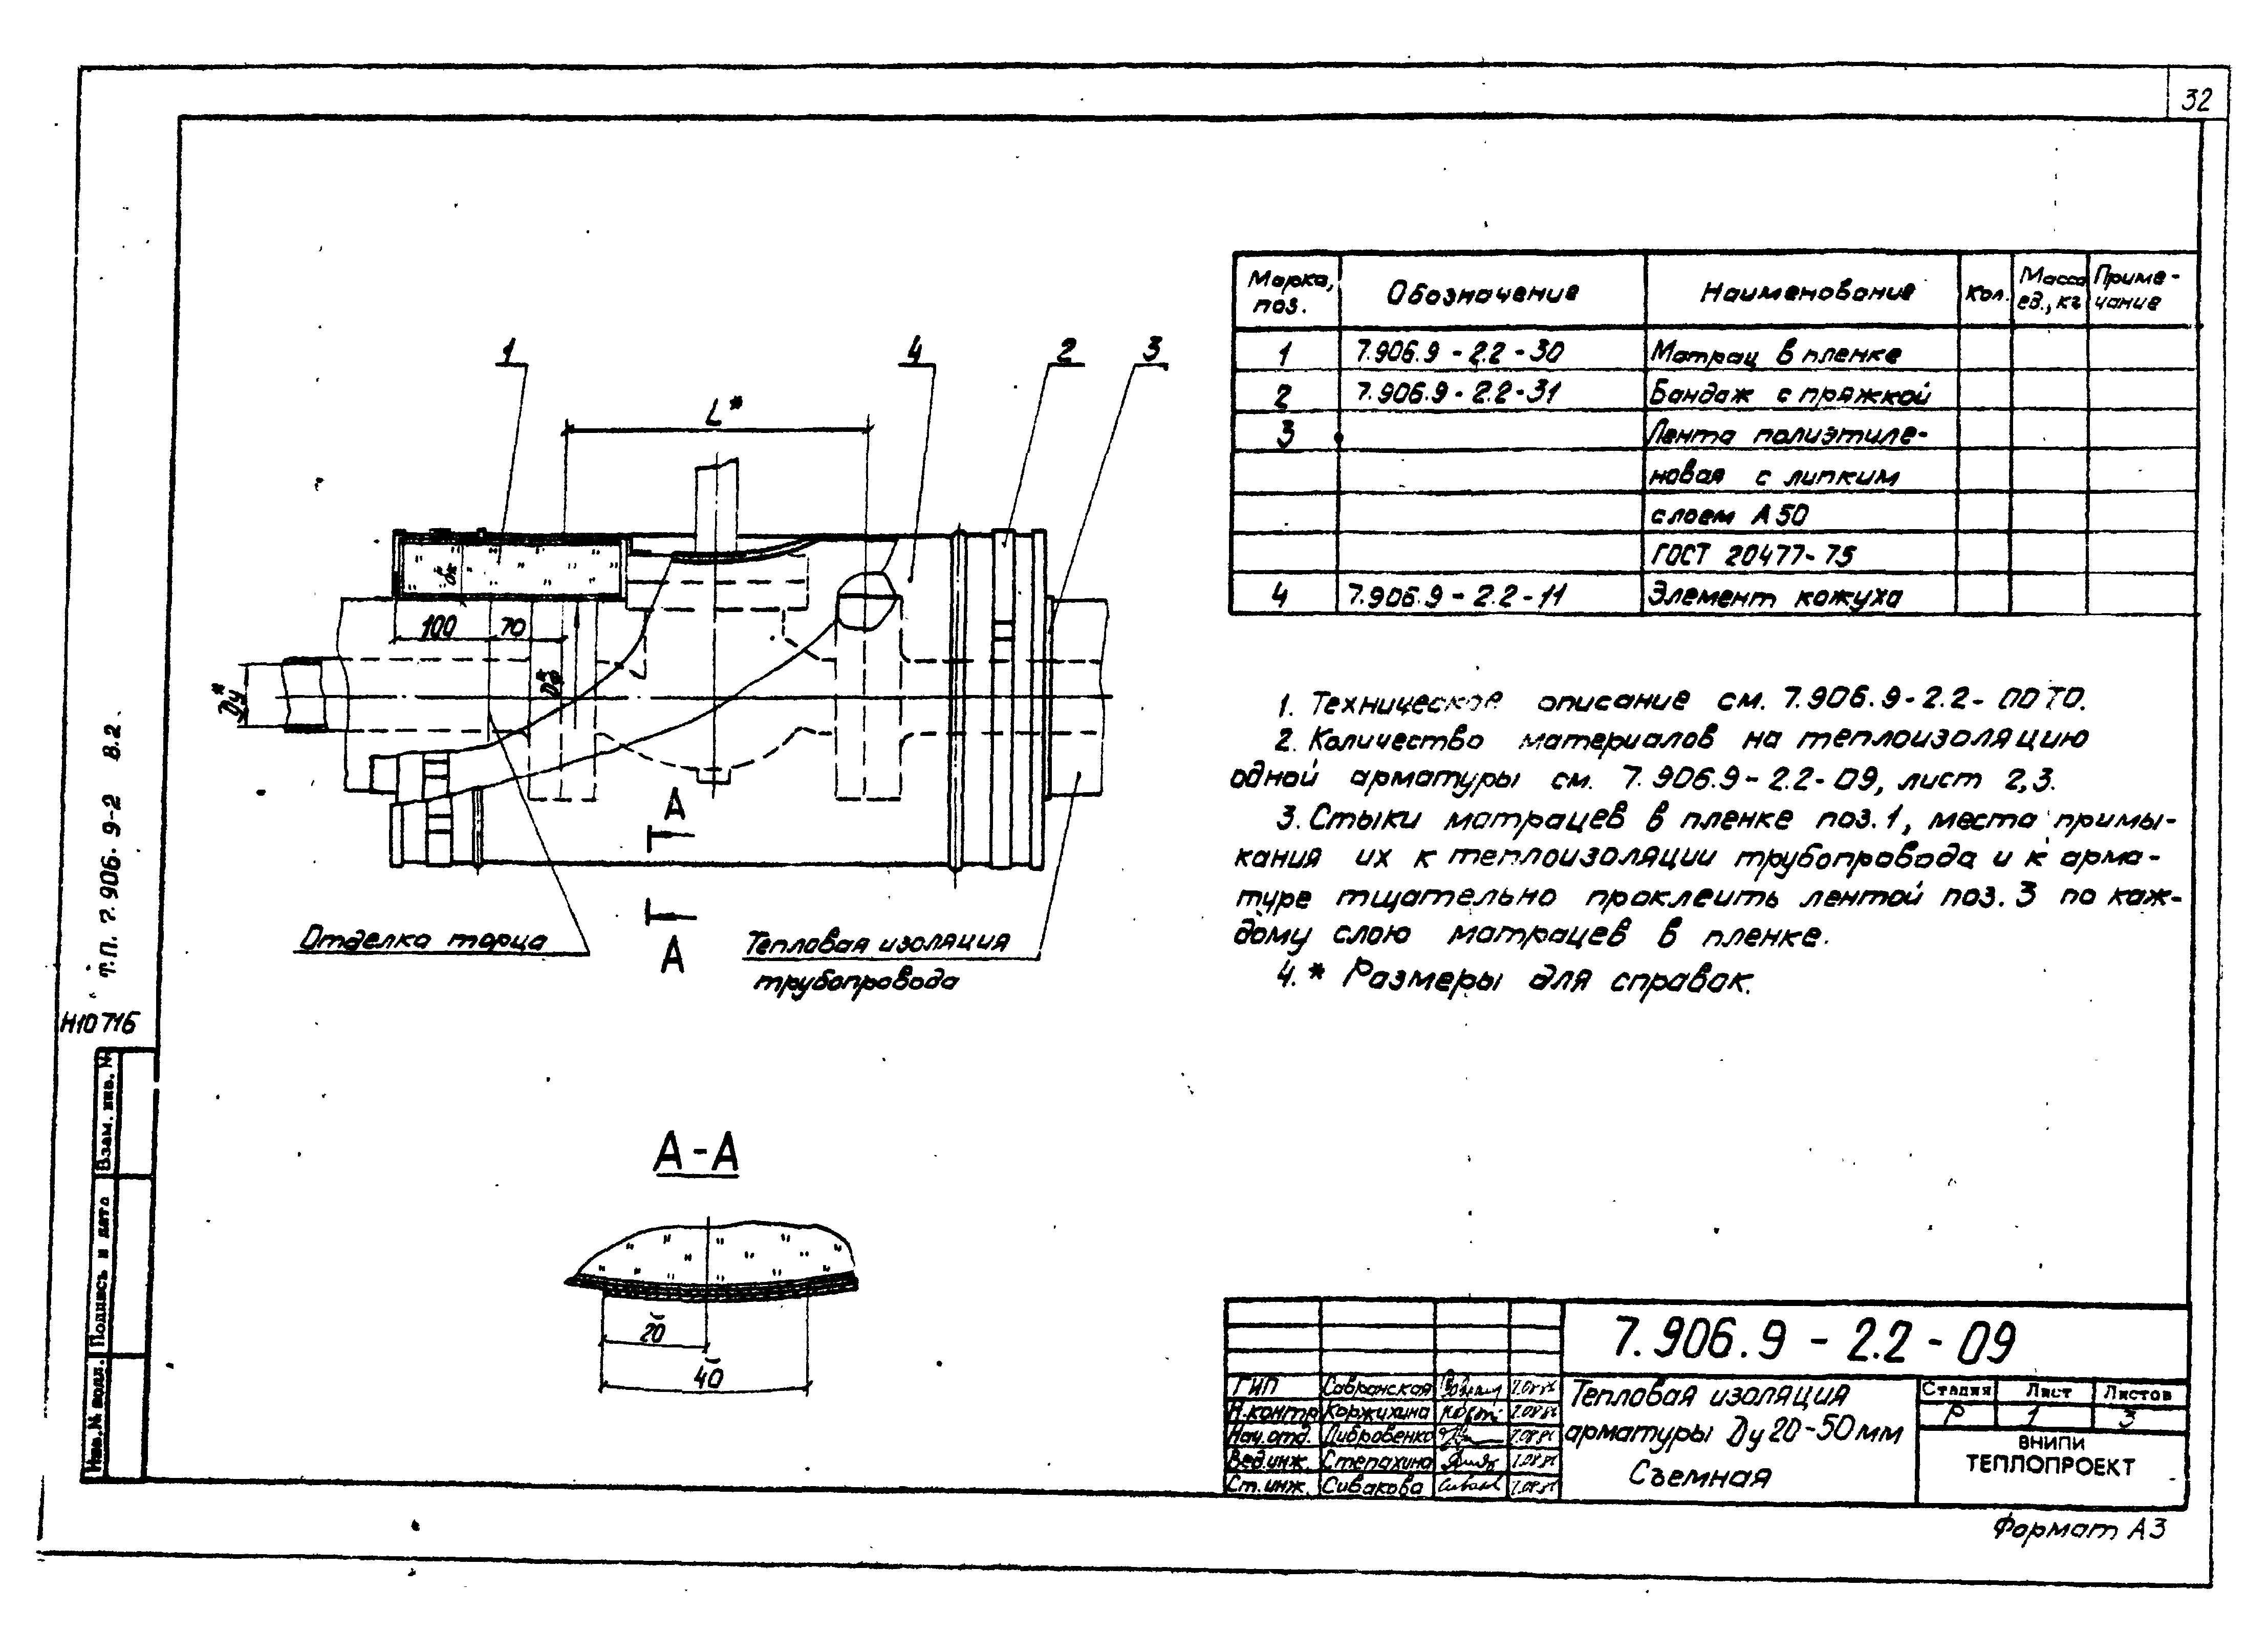 32
Марка, поз.
Обозначение
Наименование
Кол.
Масса ед., кг
Приме-чание
1 7.906.9-2.2-30 Матрац в пленке
2 7.906.9-2.2-31 Бандаж с пряжкой
3 Лента полиэтиле-
новая с липким
слоем А50
ГОСТ 20477-75
4 7.906.9-2.2-11 Элемент кожуха
1 4 2 3
L*
δк*
100 70
Dу*
A
A
Отделка торца
Тепловая изоляция
трубопровода
1. Техническое описание см. 7.906.9-2.2-00ТО.
2. Количество материалов на теплоизоляцию
одной арматуры см. 7.906.9-2.2-09, лист 2,3.
3. Стыки матрацев в пленке поз.1, места примы-
кания их к теплоизоляции трубопровода и к арма-
туре тщательно проклеить лентой поз. 3 по каж-
дому слою матрацев в пленке.
4.* Размеры для справок.
А-А
20
40
Т.П. 7.906.9-2 В.2
Н10716
Взам. инв. №
Подпись и дата
Инв.№ подл.
7.906.9-2.2-09
ГИП Савранская
Н.контр Коржихина
Нач.отд. Дибровенко
Вед.инж. Степахина
Ст.инж. Сивакова
Тепловая изоляция
арматуры Dу 20-50мм
Съемная
Стадия Лист Листов
Р 1 3
ВНИПИ
ТЕПЛОПРОЕКТ
Формат А3